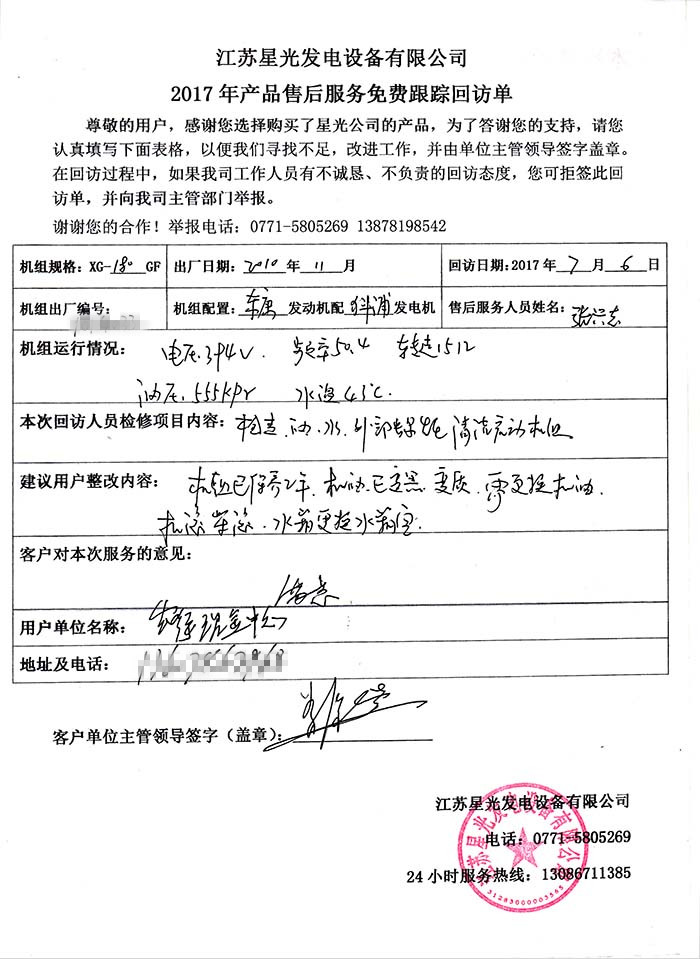 江苏星光发电设备有限公司
2017年产品售后服务免费跟踪回访单
尊敬的用户，感谢您选择购买了星光公司的产品，为了答谢您的支持，请您
认真填写下面表格，以便我们寻找不足，改进工作，并由单位主管领导签字盖章。
在回访过程中，如果我司工作人员有不诚恳、不负责的回访态度，您可拒签此回
访单，并向我司主管部门举报。
谢谢您的合作！举报电话：0771-5805269 13878198542
机组规格：XG-180 GF 出厂日期：2010 年 11 月 回访日期：2017 年 7 月 6 日
机组出厂编号： 机组配置：东康 发动机配 科浦 发电机 售后服务人员姓名：
机组运行情况： 电压394V. 频率50.4 转速1512
油压555kpr 水温43℃.
本次回访人员检修项目内容：检查.油.水.外部 清洁启动机组
建议用户整改内容： 机组已保养2年.机油已变黑.变质.需更换机油.
机滤 柴滤.水箱更换水箱宝.
客户对本次服务的意见：
满意
用户单位名称：
地址及电话：
客户单位主管领导签字（盖章）：
江苏星光发电设备有限公司
电话：0771-5805269
24小时服务热线：13086711385
江苏星光发电设备有限公司